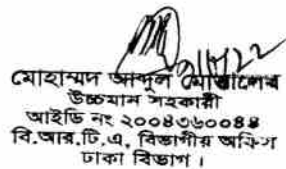 মোহাম্মদ আব্দুল মোতালেব
উচ্চমান সহকারী
আইডি নং ২০০৪৩৬০০৪৪
বি.আর.টি.এ, বিভাগীয় অফিস
ঢাকা বিভাগ।